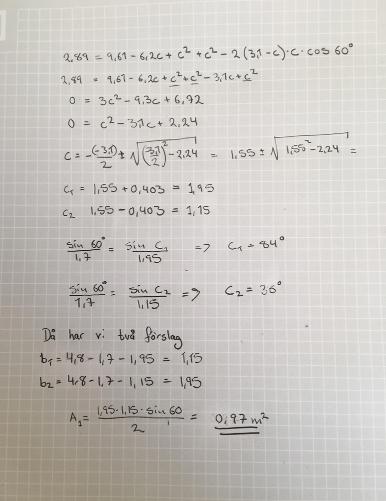 2,89 = 9,61 - 6,2c + c² + c² - 2(3,1-c)·c·cos 60°
2,89 = 9,61 - 6,2c + c² + c² - 3,1c + c²
0 = 3c² - 9,3c + 6,72
0 = c² - 3,1c + 2,24
c = -(-3,1)/2 ± √((3,1/2)² - 2,24) = 1,55 ± √(1,55² - 2,24) =
c₁ = 1,55 + 0,403 = 1,95
c₂ 1,55 - 0,403 = 1,15
sin 60°/1,7 = sin C₁/1,95 => C₁ = 84°
sin 60°/1,7 = sin C₂/1,15 => C₂ = 36°
Då har vi två förslag
b₁ = 4,8 - 1,7 - 1,95 = 1,15
b₂ = 4,8 - 1,7 - 1,15 = 1,95
A₁ = 1,95·1,15·sin 60/2 = 0,97 m²